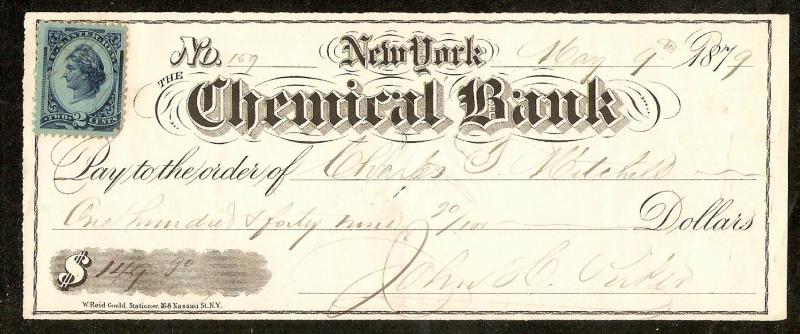 U.S. INTER. REV.
TWO 2 CENTS
No. 159 New York May 9th 1879
THE
Chemical Bank
Pay to the order of Charles Mitchell
One hundred & forty nine 90/100 Dollars
$ 149.90
John C.
W. Reid Gould, Stationer, 168 Nassau St. N.Y.